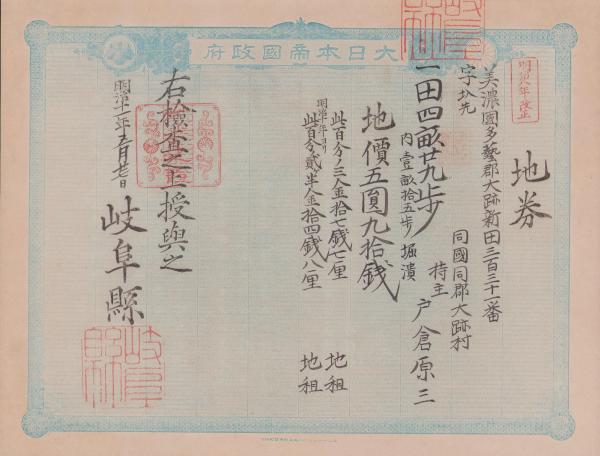 大日本帝國政府
明治八年改正
地券
美濃國多藝郡大跡新田三百三十一番
字
同國同郡大跡村
持主 戸倉原三
一田四畝廿九歩
内壹畝拾五歩 堀潰
地價五圓九拾錢
此百分ノ三金拾七錢七厘 地租
明治十年ヨリ
此百分ノ貳半金拾四錢八厘 地租
右檢査之上授與之
明治十一年五月廿日
岐阜縣